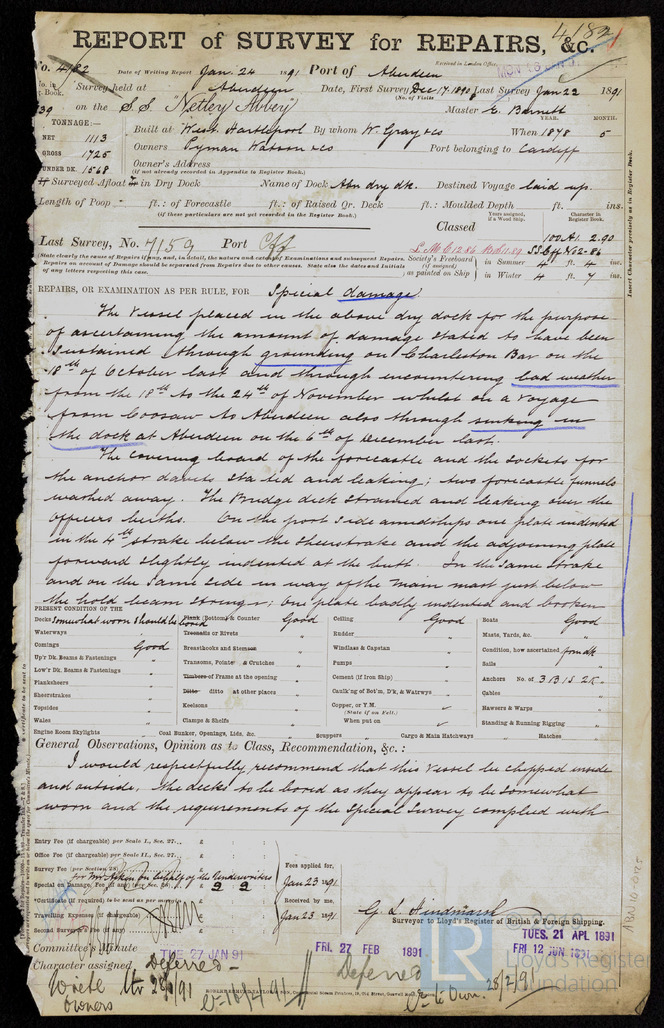 4182
REPORT of SURVEY for REPAIRS, &c.
No. 4182 Date of Writing Report Jan. 24 1891 Port of Aberdeen
Received in London Office
No. in Survey held at Aberdeen Date, First Survey Dec 17 1890 Last Survey Jan 22 1891
Book. (No. of Visits
39 on the S.S. "Netley Abbey" Master E. Barnett
TONNAGE:— YEAR. MONTH.
NET 1113 Built at West Hartlepool By whom W. Gray & Co When 1878 5
GROSS 1725 Owners Pyman Watson & Co Port belonging to Cardiff
UNDER DK. 1568 Owner's Address
(if not already recorded in Appendix to Register Book.)
If Surveyed Afloat or in Dry Dock Name of Dock Abn dry dk. Destined Voyage laid up.
Length of Poop ft.: of Forecastle ft.: of Raised Qr. Deck ft.: Moulded Depth ft. ins.
(if these particulars are not yet recorded in the Register Book.)
Years assigned, if a Wood Ship. Character in Register Book.
Classed 100 A1 2.90
Last Survey, No. 7159 Port Cff
(State clearly the cause of Repairs if any, and, in detail, the nature and extent of Examinations and subsequent Repairs.
Repairs on account of Damage should be separated from Repairs due to other causes. State also the dates and Initials
of any letters respecting this case.
Society's Freeboard (if assigned) as painted on Ship
in Summer 4 ft. 4 ins.
in Winter 4 ft. 7 ins.
Insert Character precisely as in Register Book.
REPAIRS, OR EXAMINATION AS PER RULE, FOR Special damage
The Vessel placed in the above dry dock for the purpose
of ascertaining the amount of damage stated to have been
sustained through grounding on Charleston Bar on the
18th of October last and through encountering bad weather
from the 18th to the 24th of November whilst on a voyage
from Coosaw to Aberdeen also through sinking in
the dock at Aberdeen on the 6th of December last.
The covering board of the forecastle and the sockets for
the anchor davits started and leaking; two forecastle funnels
washed away. The Bridge deck strained and leaking over the
Officers berths. On the port side amidships one plate indented
in the 4th strake below the Sheerstrake and the adjoining plate
forward slightly indented at the butt. In the same strake
and on the same side in way of the main mast just below
the hold beam stringer; one plate badly indented and broken
PRESENT CONDITION OF THE
Decks Somewhat worn should be bored
Waterways
Comings Good
Up'r Dk. Beams & Fastenings "
Low'r Dk. Beams & Fastenings "
Planksheers
Sheerstrakes "
Topsides "
Wales "
Engine Room Skylights "
Plank (Bottom) & Counter Good
Treenails or Rivets "
Breasthooks and Sternson "
Transoms, Pointers, & Crutches "
Timbers of Frame at the opening "
Ditto ditto at other places "
Keelsons "
Clamps & Shelfs "
Coal Bunker, Openings, Lids, &c. "
Ceiling Good
Rudder "
Windlass & Capstan "
Pumps "
Cement (if Iron Ship) "
Caulk'ng of Bot'm, D'k, & Watrwys "
Copper, or Y.M.
(State if on Felt.)
When put on
Scuppers "
Cargo & Main Hatchways "
Boats Good
Masts, Yards, &c. "
Condition, how ascertained from dk
Sails
Anchors No. of 3B 1S 2K
Cables
Hawsers & Warps "
Standing & Running Rigging "
Hatches "
General Observations, Opinion as to Class, Recommendation, &c.:
I would respectfully recommend that this vessel be chipped inside
and outside, the decks to be bored as they appear to be somewhat
worn and the requirements of the Special Survey complied with
Entry Fee (if chargeable) per Scale I., Sec. 27... £ : :
Office Fee (if chargeable) per Scale II., Sec. 27... £ : :
Survey Fee (per Section 28) £ : :
for Mr Aitken on behalf of the Underwriters
Special on Damage, Fee (if any) £ 9 9
*Certificate (if required) to be sent as per margin
Travelling Expenses (if chargeable) £
Second Survey Fee (if any) £
Fees applied for,
Jan 23 1891
Received by me,
Jan 23 1891
G. L. Hindmarsh
Surveyor to Lloyd's Register of British & Foreign Shipping.
Committee's Minute TUE 27 JAN 91 FRI. 27 FEB 1891 TUES. 21 APL 1891
FRI 12 JUN 1891
Character assigned Deferred Deferred
28/2/91
Wrote
Owners
LR
Lloyd's Register
Foundation